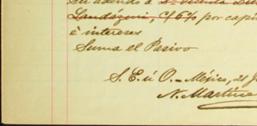 su adeudo á
Landázuri, 45% por capi
é intereses
Suma el Pasivo
S. E. ú O.—México, 21 J
N. Martíne